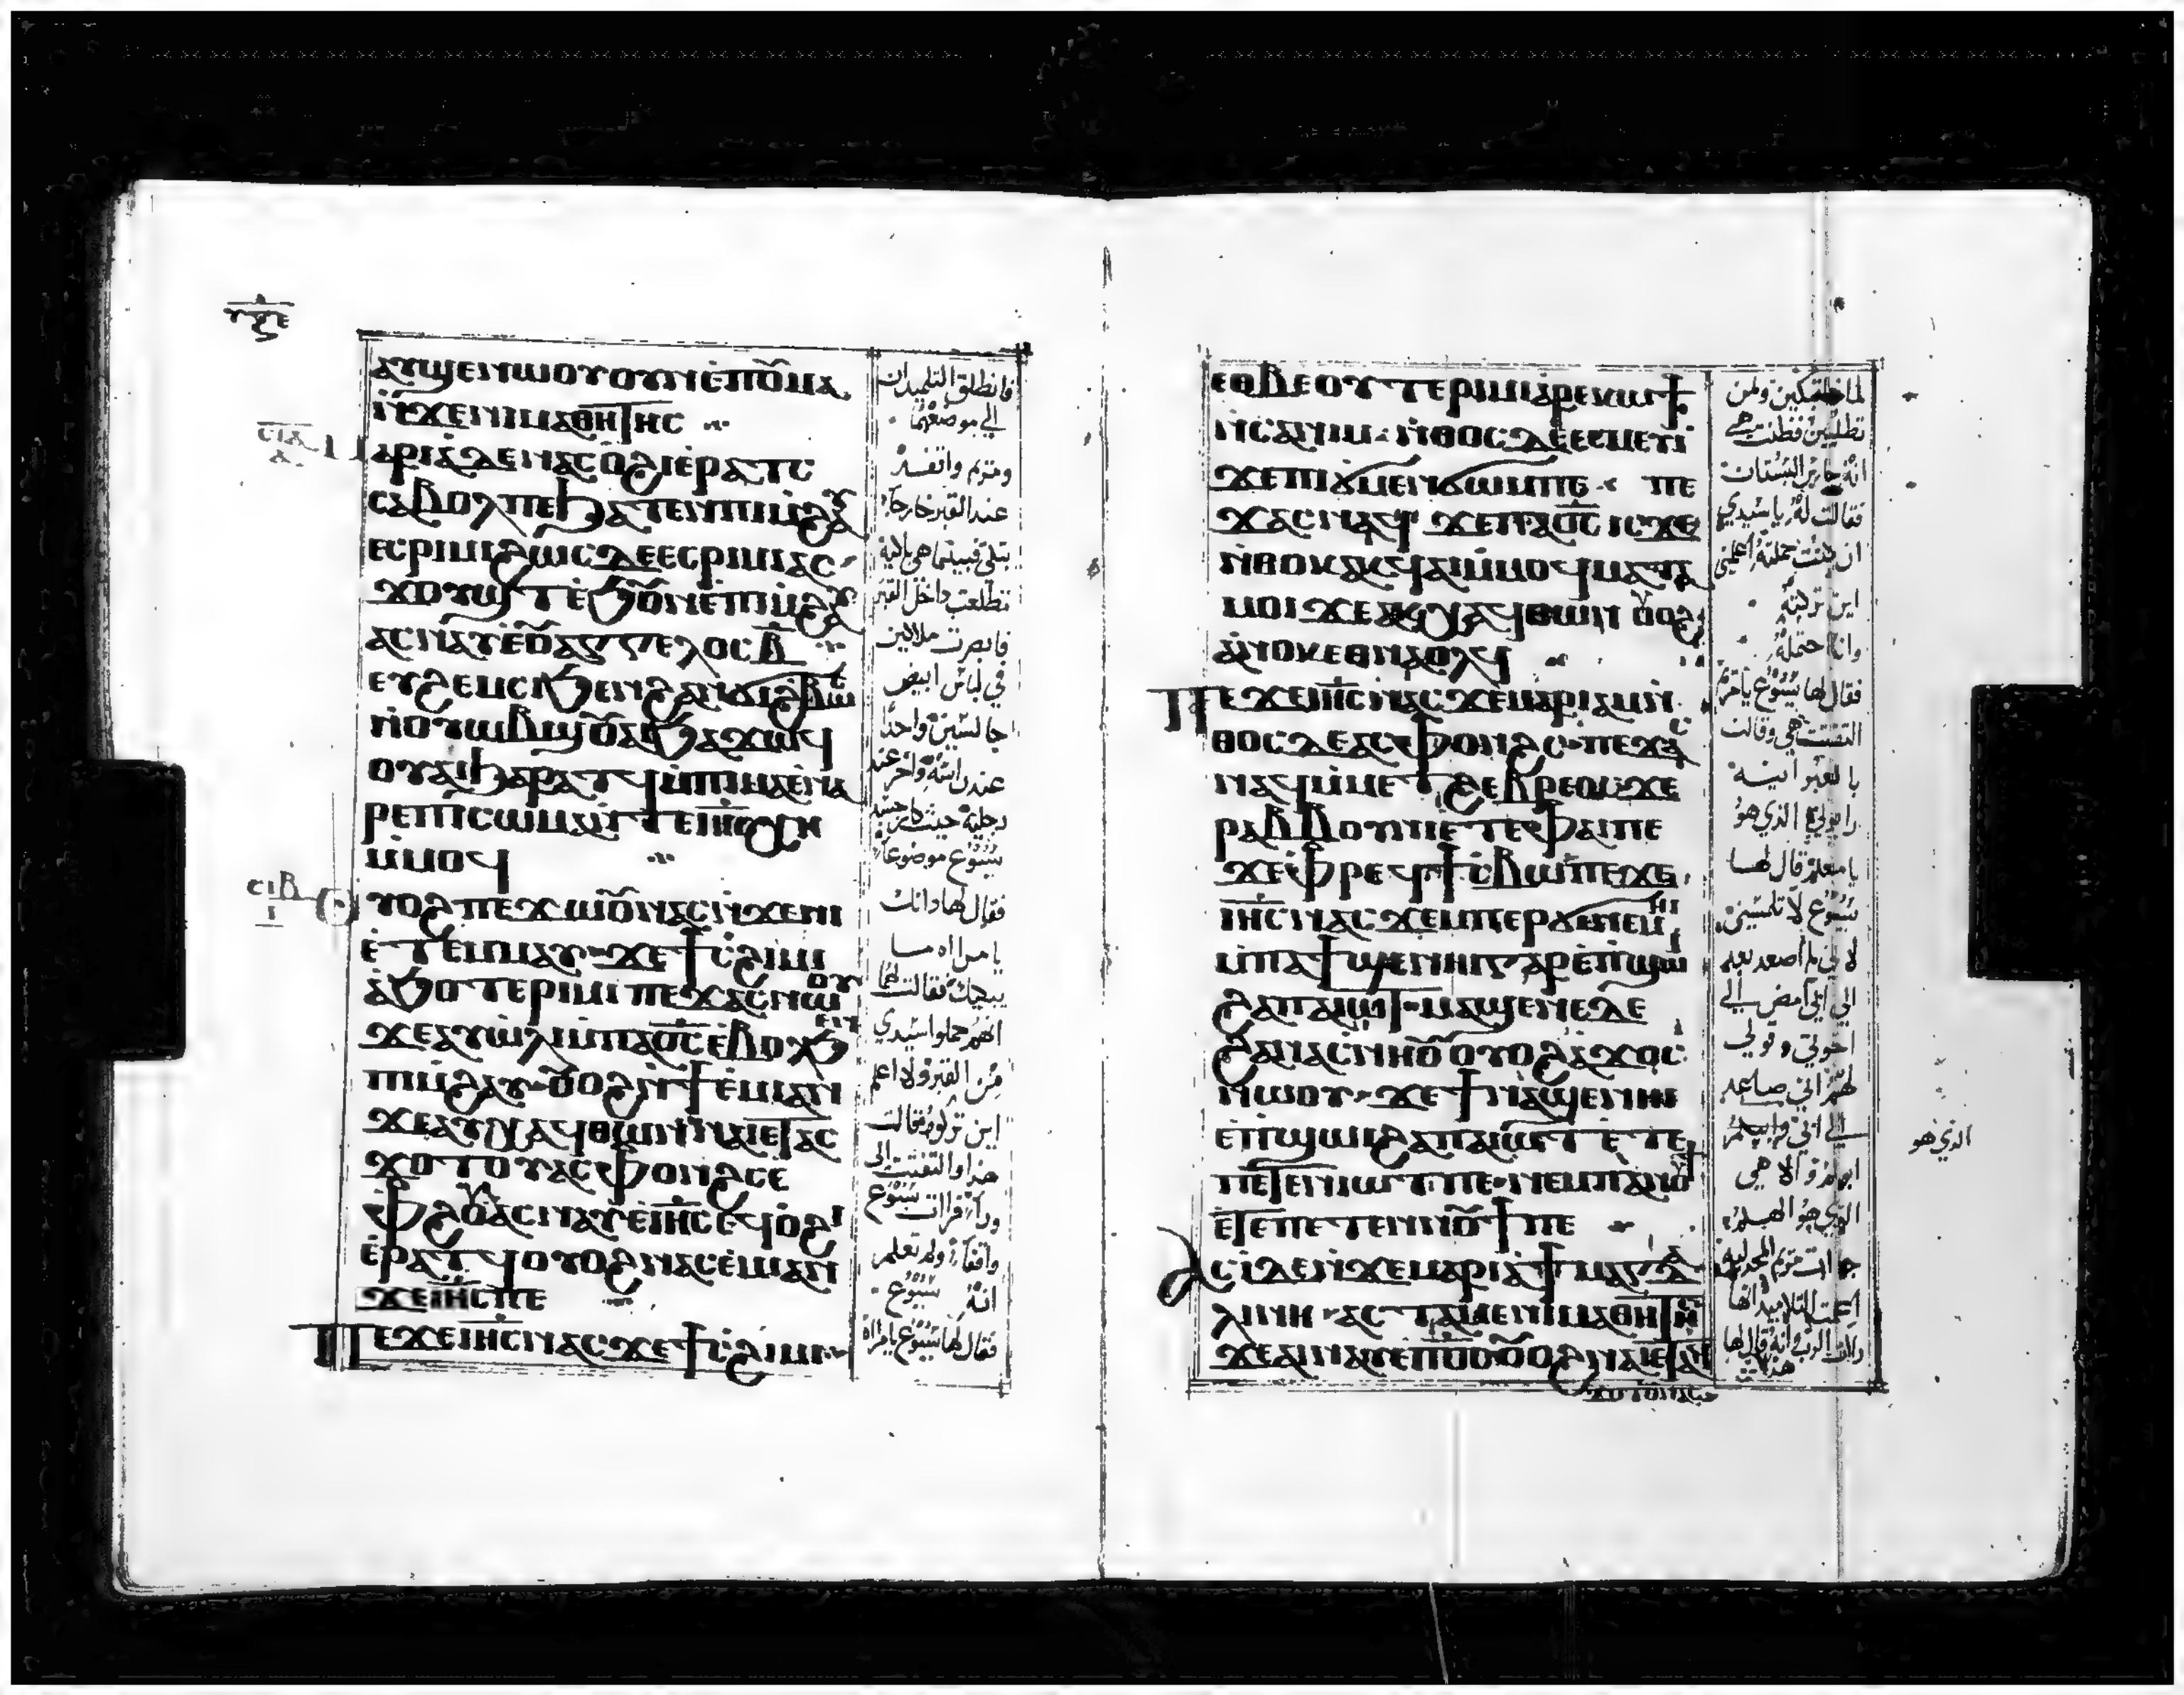 ⲁⲩϣⲉⲛⲱⲟⲩⲟⲩⲛⲉⲡⲟ̅ⲙⲁ
ⲛ̀ϫⲉⲛⲓⲙⲁⲑⲏⲧⲏⲥ
ⲙⲁⲣⲓⲁⲇⲉⲛⲁⲥⲟ̀ϩⲓⲉ̀ⲣⲁⲧⲥ
ⲥⲁⲃⲟⲗⲡⲉϧⲁⲧⲉⲛⲡⲓⲙ̀ϩⲁⲩ
ⲉⲥⲣⲓⲙⲓϩⲱⲥⲇⲉⲉⲥⲣⲓⲙⲓⲁⲥ
ϫⲟⲩϣⲧⲉ̀ϧⲟⲩⲛⲉ̀ⲡⲓⲙ̀ϩⲁⲩ
ⲁⲥⲛⲁⲩⲉ̀ⲁⲅⲅⲉⲗⲟⲥⲃ̅
ⲉⲩϩⲉⲙⲥⲓϧⲉⲛϩⲁⲛϩⲃⲱⲥ
ⲛ̀ⲟⲩⲱⲃϣⲟⲩⲁⲓϧⲁϫⲱϥ
ⲟⲩⲁⲓϧⲁⲣⲁⲧϥⲙ̀ⲡⲓⲙⲁⲉⲛⲁ
ⲣⲉⲡⲓⲥⲱⲙⲁⲛ̀ⲧⲉⲓⲏ̅ⲥ̅ⲭⲏ
ⲙ̀ⲙⲟϥ
ⲟⲩⲟϩⲡⲉϫⲱⲟⲩⲛⲁⲥⲛ̀ϫⲉⲛⲏ
ⲉ̀ⲧⲉⲙⲙⲁⲩϫⲉϯⲥϩⲓⲙⲓ
ⲁϧⲟⲧⲉⲣⲓⲙⲓⲡⲉϫⲁⲥⲛⲱⲟⲩ
ϫⲉⲁⲩⲱ̀ⲗⲓⲙ̀ⲡⲁⲟ̅ⲥ̅ⲉ̀ⲃⲟⲗϧⲉⲛ
ⲡⲓⲙ̀ϩⲁⲩⲟⲩⲟϩⲛ̀ϯⲉ̀ⲙⲓⲁⲛ
ϫⲉⲁⲩⲭⲁϥⲑⲱⲛⲛⲁⲓⲉⲧⲁⲥ
ϫⲟⲧⲟⲩⲁⲥⲫⲟⲛϩⲥⲉ
ⲫⲁϩⲟⲩⲁⲥⲛⲁⲩⲉ̀ⲓⲏ̅ⲥ̅ⲉϥⲟ̀ϩⲓ
ⲉ̀ⲣⲁⲧϥⲟⲩⲟϩⲛⲁⲥⲉ̀ⲙⲓⲁⲛ
ϫⲉⲓⲏ̅ⲥ̅ⲡⲉ
ⲡⲉϫⲉⲓⲏ̅ⲥ̅ⲛⲁⲥϫⲉϯⲥϩⲓⲙⲓ
فانطلق التلميدان
الي موضعهما
ومريم واقفه
عند القبر خارجا
تبكي فبينما هي باكية
تطلعت داخل القبر
فابصرت ملاكين
في لباس ابيض
جالسين واحدا
عند راسه واخر عند
رجليه حيث كان جسد
يسوع موضوعا
فقالا لها دانك
يا مراه مـا
يبكيك فقالت لهما
انهم حملوا سيدي
من القبر ولا اعلم
اين تركوه فقالت
هدا والتفتت الي
ورآ فرات يسوع
واقفا ولم تعلم
انه يسوع
فقال لها يسوع يا مراة
ⲥⲓⲃ̅
ⲉⲑⲃⲉⲟⲩⲧⲉⲣⲓⲙⲓⲁⲣⲉⲕⲱϯ
ⲛ̀ⲥⲁⲛⲓⲙⲛ̀ⲑⲟⲥⲇⲉⲉⲥⲙⲉⲩⲓ
ϫⲉⲡⲓϭⲙⲉⲛϭⲱⲙⲡⲉ ⲡⲉ
ϫⲁⲥⲛⲁϥϫⲉⲡⲁⲟ̅ⲥ̅ⲓⲥϫⲉ
ⲛ̀ⲑⲟⲕⲁⲕϥⲁⲓⲙ̀ⲙⲟϥⲙⲁⲧⲁ
ⲙⲟⲓϫⲉⲁⲕⲭⲁϥⲑⲱⲛ ⲟⲩⲟϩ
ⲁ̀ⲛⲟⲕⲉⲑⲛⲁⲟⲗϥ
ⲡⲉϫⲉⲓⲏ̅ⲥ̅ⲛⲁⲥϫⲉⲙⲁⲣⲓⲁⲙⲛ̀
ⲑⲟⲥⲇⲉⲁⲥⲫⲟⲛϩⲥⲡⲉϫⲁⲥ
ⲛⲁϥⲙ̀ⲙⲉⲧϩⲉⲃⲣⲉⲟⲥϫⲉ
ⲣⲁⲃⲃⲟⲩⲛⲓⲉ̀ⲧⲉⲫⲁⲓⲡⲉ
ϫⲉⲫⲣⲉϥϯⲥⲃⲱⲡⲉϫⲉ
ⲓⲏ̅ⲥ̅ⲛⲁⲥϫⲉⲙⲡⲉⲣϭⲓⲛⲉⲙⲏⲓ
ⲙ̀ⲡⲁϯϣⲉⲛⲏⲓⲅⲁⲣⲉ̀ⲡϣⲱⲓ
ϩⲁⲡⲁⲓⲱⲧⲙⲁϣⲉⲛⲉⲇⲉ
ϩⲁⲛⲁⲥⲛⲏⲟⲩⲟⲩⲟϩⲁ̀ϫⲟⲥ
ⲛⲱⲟⲩϫⲉϯⲛⲁϣⲉⲛⲏⲓ
ⲉ̀ⲡϣⲱⲓϩⲁⲡⲁⲓⲱⲧⲉ̀ⲧⲉ
ⲡⲉⲧⲉⲛⲓⲱⲧⲡⲉⲛⲉⲙⲡⲁⲛⲟⲩϯ
ⲉ̀ⲧⲉⲡⲉⲧⲉⲛⲛⲟⲩϯⲡⲉ
ⲁⲥⲓ̀ⲇⲉⲛ̀ϫⲉⲙⲁⲣⲓⲁϯⲙⲁⲅⲇⲁ
ⲗⲓⲛⲏⲁⲥⲧⲁⲙⲉⲛⲓⲙⲁⲑⲏⲧⲏⲥ
ϫⲉⲁⲓⲛⲁⲩⲉ̀ⲡⲟ̅ⲥ̅ⲟⲩⲟϩⲛⲁⲓⲉⲧⲁϥ
ϫⲟⲧⲟⲩⲛⲁⲥ
لماذا تبكين ومن
تطلبين فظنت هي
انه حارس البستان
فقالت له يا سيدي
ان كنت حملته اعلمني
اين تركته
وانا احمله
فقال لها يسوع يا مريم
التفتت هي وقالت
بالعبرانيه
رابوني الذي هو
يا معلم قال لهـا
يسوع لا تلمسيني
لاني لم اصعد بعد
الي ابي امض الي
اخوتي وقولي
لهم اني صاعد
الي ابي وابيكم
الذي هو
الاهي
الذي هو الهكم
جـات مريم المجدليه
اعلمت التلاميذ انها
رات الرب وانه قال لها
هذا